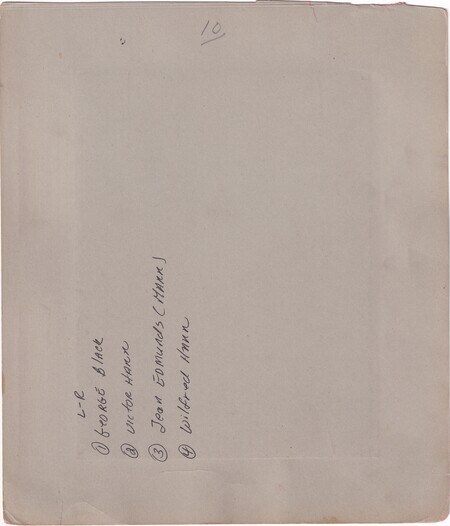 L-R
① GEORGE Black
② Victor HANN
③ Jean EDMUNDS (HANN)
④ Wilfred HANN
10